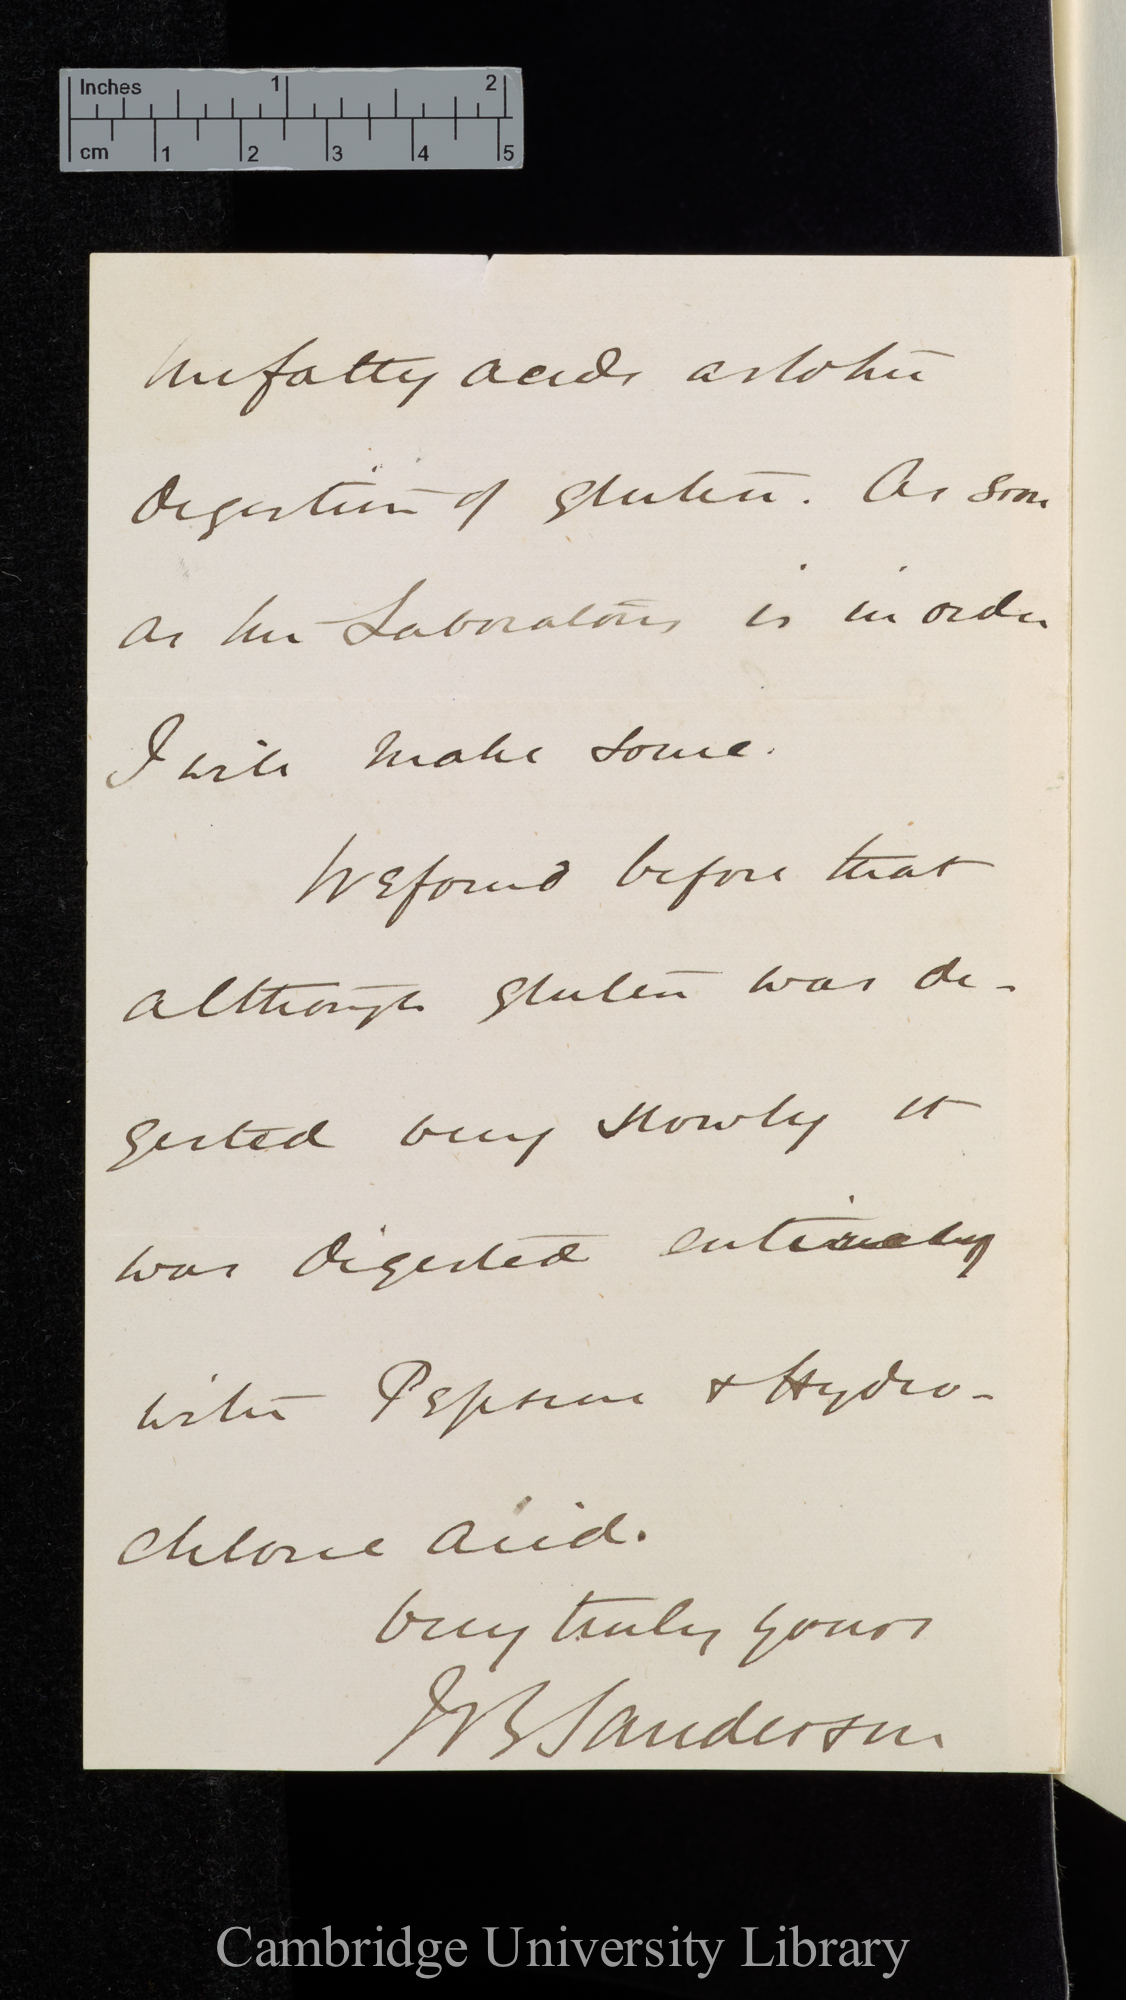 Inches 1 2
cm 1 2 3 4 5
the fatty acids as to the
digestion of gluten. As soon
as the Laboratory is in order
I will make some.
We found before that
although gluten was di-
gested very slowly it
was digested entirely
with Pepsine & Hydro-
chloric acid.
very truly yours
J B Sanderson
Cambridge University Library